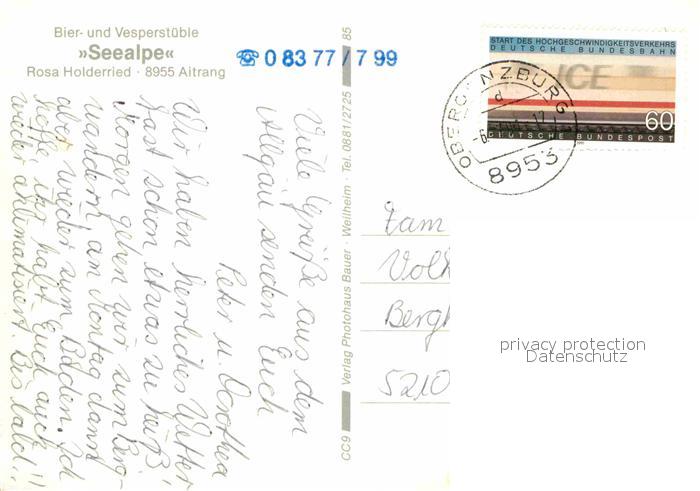 Bier- und Vesperstüble
»Seealpe«
Rosa Holderried · 8955 Aitrang
☎ 0 83 77 / 7 99
START DES HOCHGESCHWINDIGKEITSVERKEHRS
DEUTSCHE BUNDESBAHN
ICE
60
DEUTSCHE BUNDESPOST
OBERGÜNZBURG
d
8953
Viele Grüße aus dem
Allgäu senden Euch
Peter u. Dorothea
Wir haben herrliches Wetter
fast schon etwas zu heiß!
Morgen gehen wir zum Berg-
wandern, am Montag dann
aber wieder zum Baden. Ich
hoffe, ihr habt Euch auch
wieder aklimatisiert. Bis bald!!
CC9 Verlag Photohaus Bauer · Weilheim · Tel. 0881/2725 85
Fam
Volk
Bergh
5210
privacy protection
Datenschutz